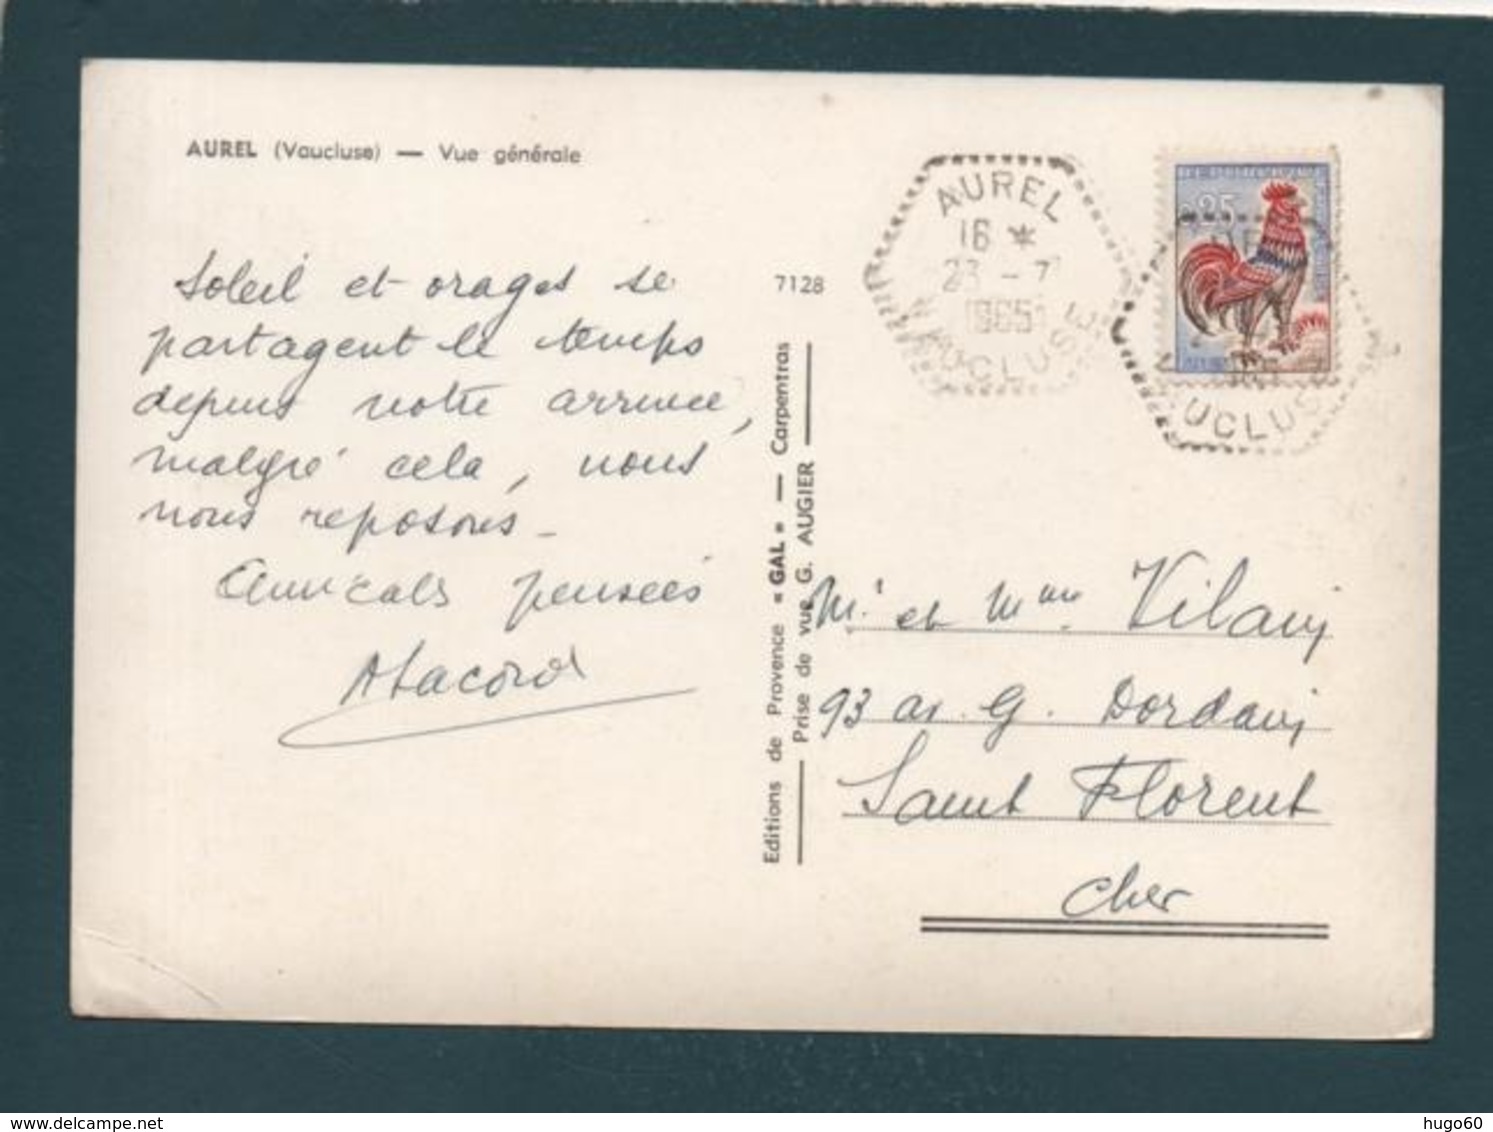 AUREL (Vaucluse) — Vue générale
Soleil et orages se
partagent le temps
depuis notre arrivée,
malgré cela, nous
nous reposons –
Amicales pensées
7128
Editions de Provence « GAL » — Carpentras
Prise de vue G. AUGIER
AUREL
16 *
23 - 7
1965
VAUCLUSE
0,25
UCLUS
Mr et Mme Vilain
93 av. G. Dordain
Saint Florent
Cher
hugo60